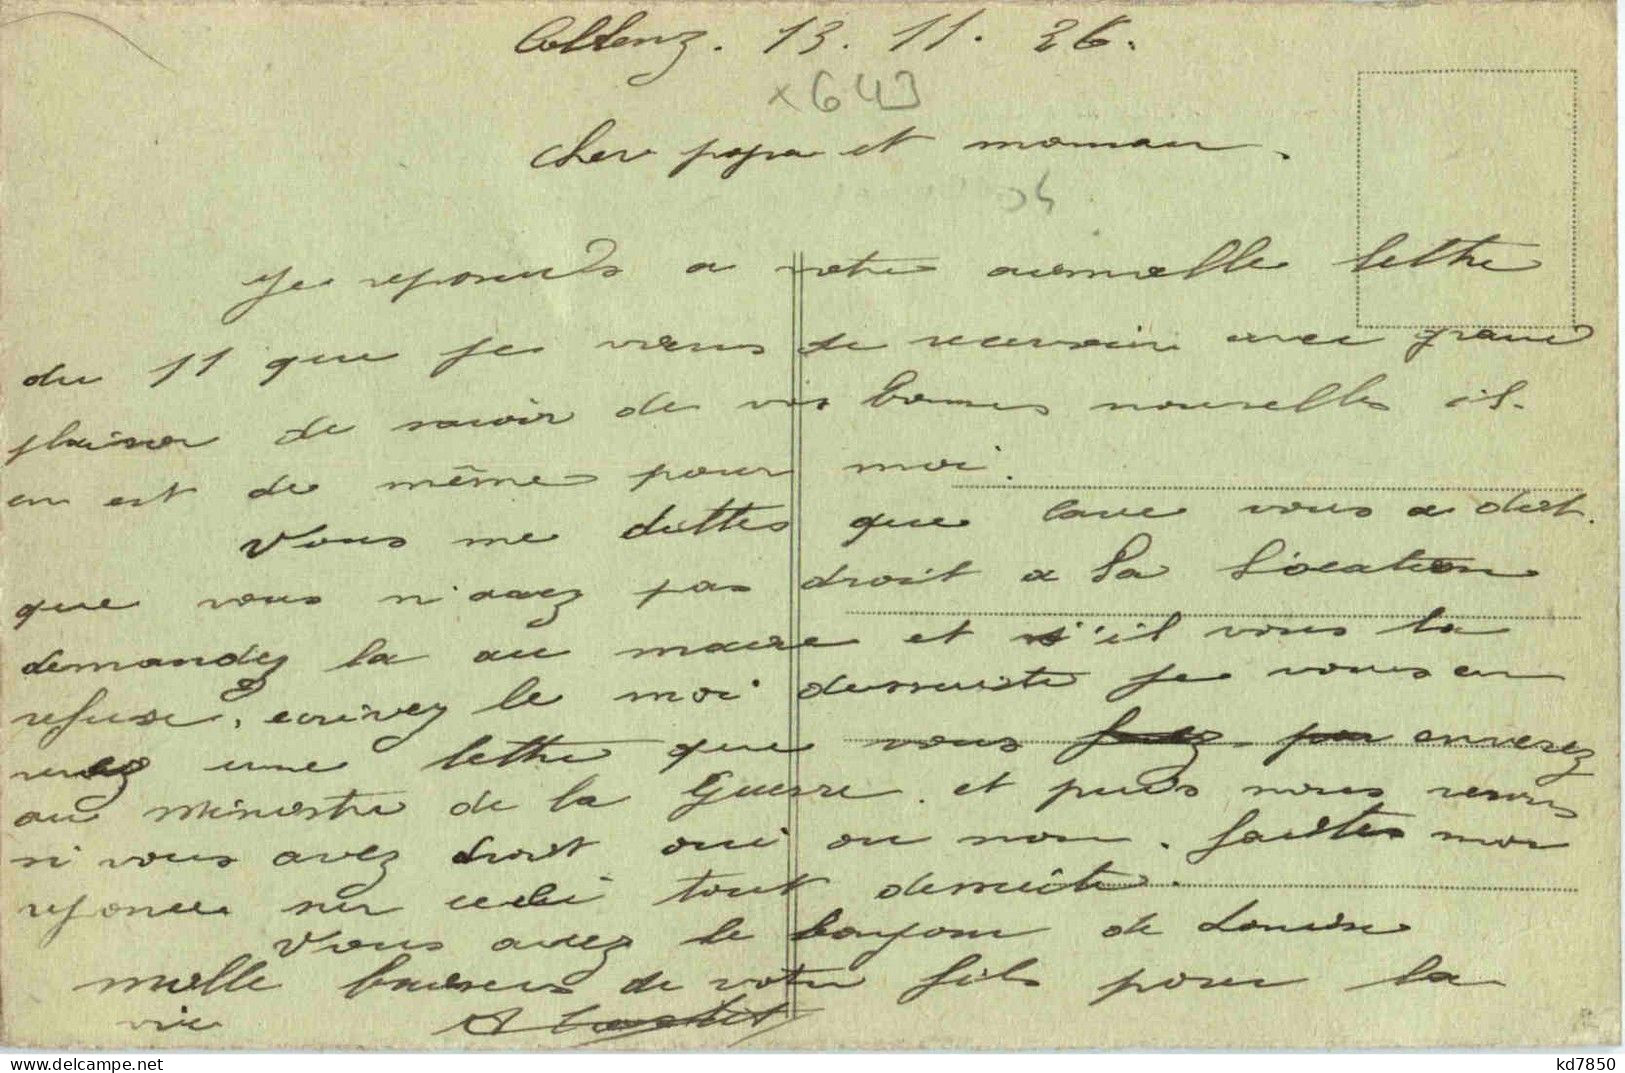 Coblenz. 13. 11. 26.
x643
cher papa et maman.
Je reponds a votre aimable lettre
du 11 que je viens de recevoir avec grand
plaisir de savoir de vos bonnes nouvelles il
en est de même pour moi.
Vous me dittes que vous a dit.
que vous n'avez pas droit a la location
demandez la au maire et s'il vous la
refuse, ecrivez le moi dessuite je vous en
une lettre que vous enverez
au Ministre de la Guerre. et puis nous
si vous avez droit oui ou non. faittes moi
reponse sur cela tout dessuite.
Vous avez le bonjour de Louise
mille baisers de votre fils pour la
vie
kd7850